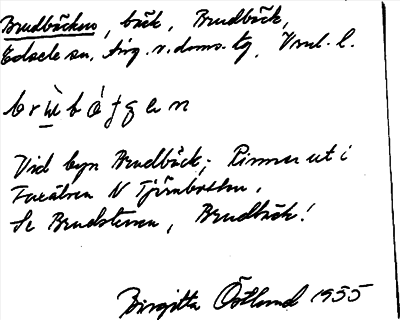 Brudbäcken, bäck, Brudbäck,
Edsele sn, Ång. v. doms. tg, Vnl. l.
Vid byn Brudbäck; Rinner ut i
Faxälven N Tjärnbotten.
Se Brudstenen, Brudbäck!
Birgitta Östlund 1955